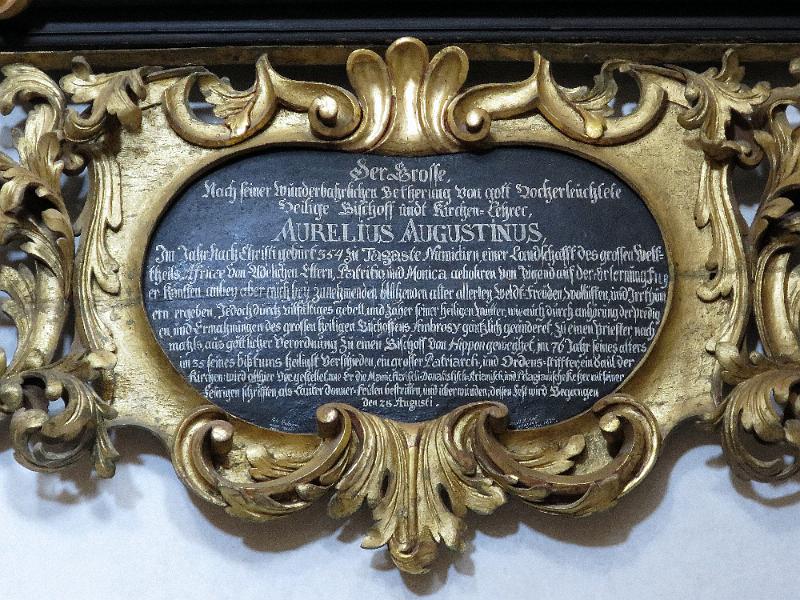 Der Grosse,
Nach seiner Wunderbahrlichen Bekherung Von gott Hocherleüchtete
Heilige Bischoff undt Kirchen-Lehrer,
AURELIUS AUGUSTINUS,
Im Jahr Nach Christi geburt 354 zu Tagaste Numidien einer Landschafft des grossen Welt-
theils Africæ Von Adelichen Eltern, Patritio und Monica gebohren Von Jugend auf der Erlernung
er Künsten, anbey aber auch bey zunehmenden blühenden alter allerley Weldt-Freüden, und Irrthüm
ern ergeben, Jedoch durch gebett und Zäher seiner heiligen Mutter, wie auch durch anhörung der predig
en und Ermahnungen des grossen heiligen Bischoffens Ambrosy gäntzlich geändert, Zu einen priester nach
mahls aus götlicher Verordnung Zu einen Bischoff Von Hippon geweichet, im 76 Jahr seines alters
im 35 seines bistums heiligst Verschieden, ein grosser Patriarch, und Ordens-stiffter, ein der
Kirchen wird alhier Vorgestellet, wie Er die und Pelagianische Ketzer mit seiner
Feürigen schrifften, als Lauter donner-Keülen bestritten, und überwunden; dessen Fest wird Begangen
den 28 Augusti.